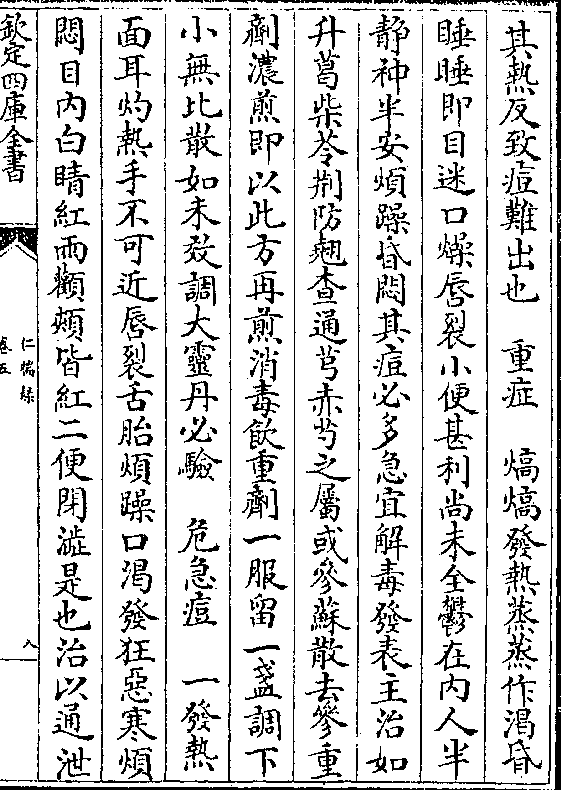 其熱反致痘難出也　重症　熇熇發熱蒸蒸作渴昏
睡睡即目迷口燥唇裂小便甚利尚未全鬱在内人半
静神半安煩躁昏悶其痘必多急宜解毒發表主治如
升葛柴苓荆防翹查通芎赤芍之屬或參蘇散去參重
劑濃煎即以此方再煎消毒飲重劑一服留一盞調下
小無比散如未效調大靈丹必驗　危急痘　一發熱
面耳灼熱手不可近唇裂舌胎煩躁口渴發狂惡寒煩
悶目内白睛紅兩顴頰皆紅二便閉澁是也治以通泄
欽定四庫全書
仁端錄
卷五
八